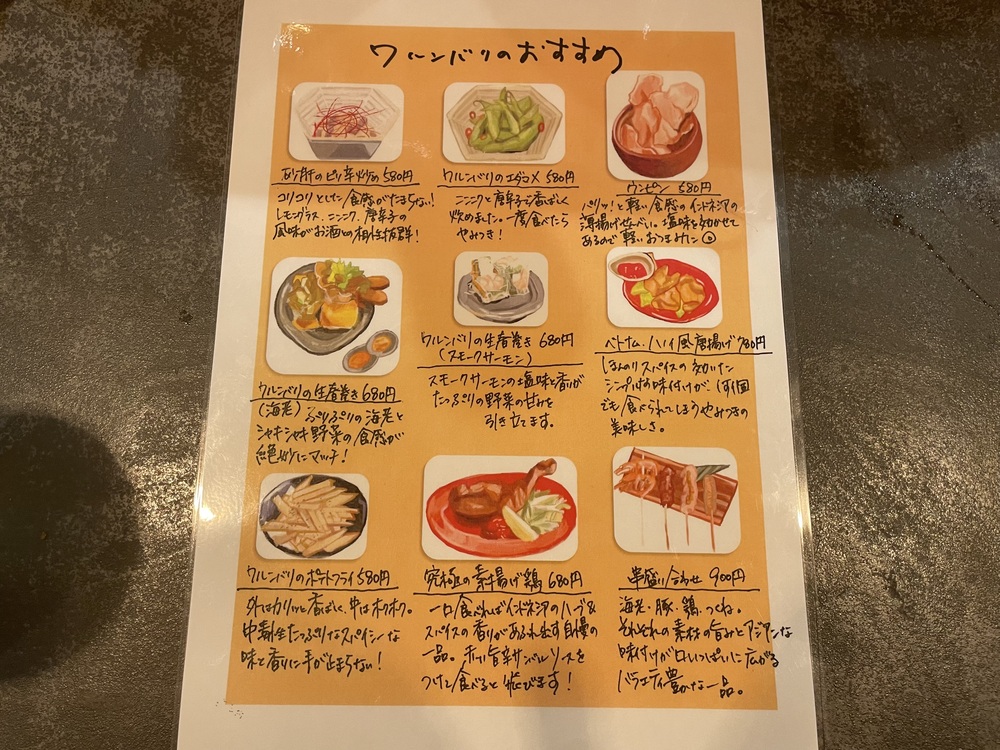 ワルンバリのおすすめ
砂肝のピリ辛炒め 580円
コリコリとした食感がたまらない!
レモングラス、ニンニク、唐辛子の
風味がお酒との相性抜群!
ワルンバリのエダマメ 580円
ニンニクと唐辛子で香ばしく
炒めました。一度食べたら
やみつき!
ウンピン 580円
パリッ!と軽い食感のインドネシアの
薄揚げせんべい。塩味を効かせて
あるので軽いおつまみに◎
ワルンバリの生春巻き 680円
(海老)ぷりぷりの海老と
シャキシャキ野菜の食感が
絶妙にマッチ!
ワルンバリの生春巻き 680円
(スモークサーモン)
スモークサーモンの塩味と香りが
たっぷりの野菜の甘みを
引き立てます。
ベトナム・ハノイ風唐揚げ 780円
ほんのりスパイスの効いた
シンプルな味付けが、何個
でも食べられてしまうやみつきの
美味しさ。
ワルンバリのポテトフライ 580円
外はカリッと香ばしく、中はホクホク。
中毒性たっぷりなスパイシーな
味と香りに手が止まらない!
究極の素揚げ鶏 680円
一口食べればインドネシアのハーブ&
スパイスの香りがあふれ出す自慢の
一品。赤い旨辛サンバルソースを
つけて食べると飛びます!
串盛り合わせ 900円
海老、豚、鶏、つくね。
それぞれの素材の旨みとアジアンな
味付けが口いっぱいに広がる
バラエティ豊かな一品。